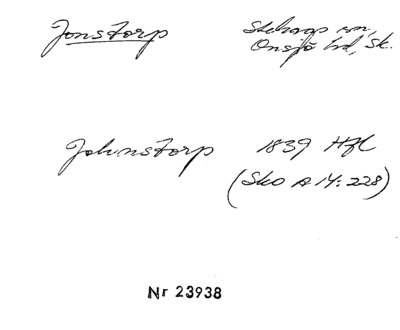 Jonstorp
Stehags sn,
Onsjö hd, Sk.
Johnstorp 1839 Hfl
(Sko A 14: 228)
Nr 23938